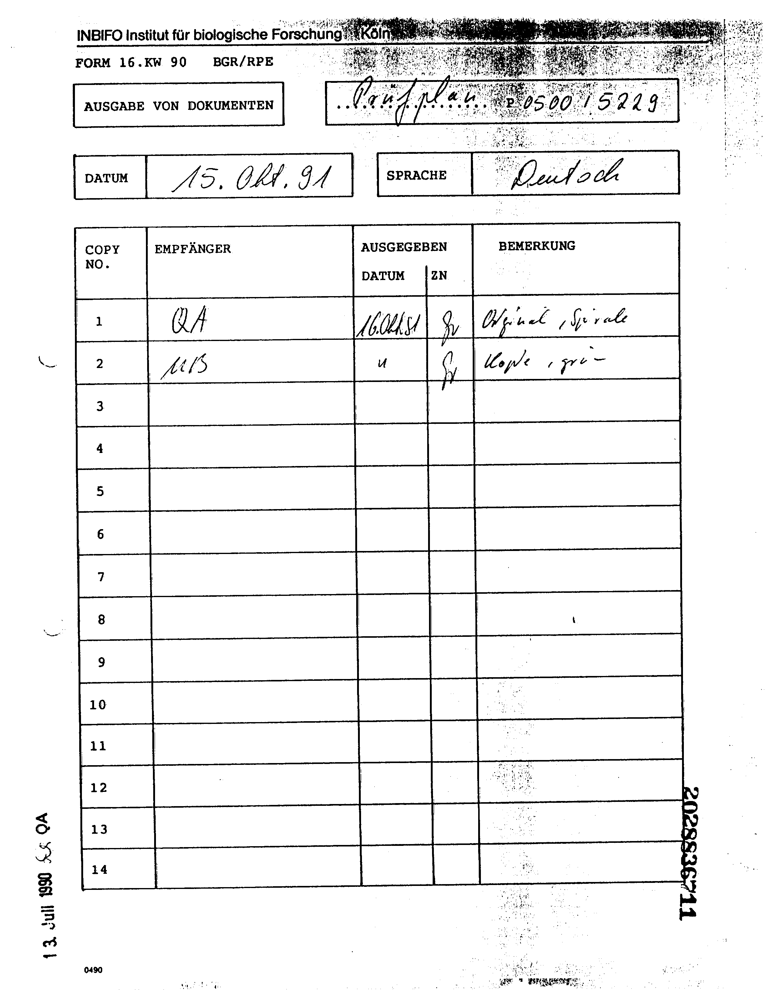 INBIFO Institut für biologische Forschung Köln
FORM 16.KW 90 BGR/RPE
AUSGABE VON DOKUMENTEN
Prüfplan P 0500 / 5229
DATUM 15. Okt. 91 SPRACHE Deutsch
COPY NO. EMPFÄNGER AUSGEGEBEN BEMERKUNG
DATUM ZN
1 QA 16.Okt.91 Original, Spirale
2 " Kopie, grün
3
4
5
6
7
8
9
10
11
12
13
14
13. Juli 1990 QA
2028836711
0490